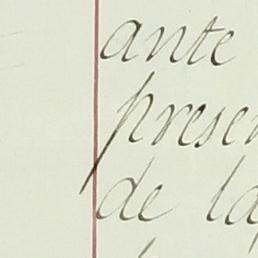 ante
presen
de la